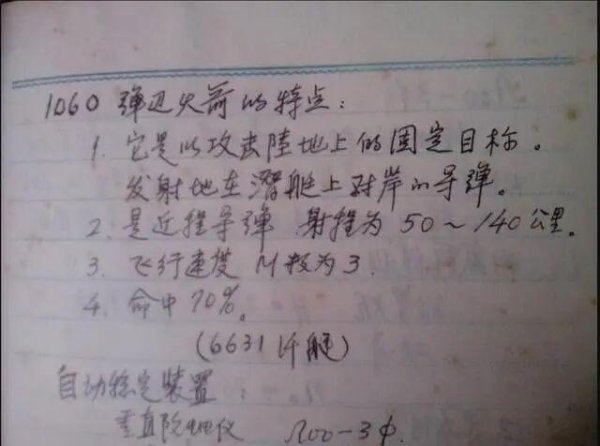 1060 弹道火箭的特点:
1. 它是以攻击陸地上的固定目标。
发射地在潜艇上对岸的导弹。
2. 是近程导弹 射程为 50~140公里。
3. 飞行速度 M数为3.
4. 命中70%。
(6631 潜艇)
自动稳定装置
垂直陀螺仪 ЛОО-3Ф.